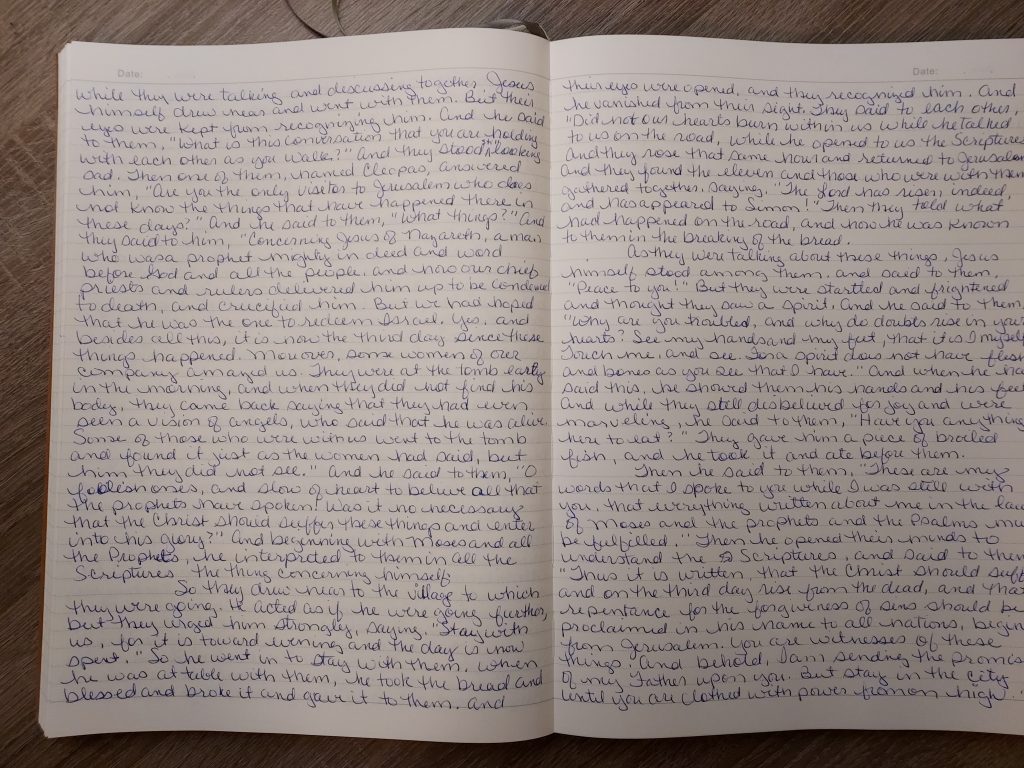 Date:
while they were talking and discussing together, Jesus
himself drew near and went with them. But their
eyes were kept from recognizing him. And he said
to them, "What is this conversation that you are holding
with each other as you walk?" And they stood still, looking
sad. Then one of them, named Cleopas, answered
him, "Are you the only visitor to Jerusalem who does
not know the things that have happened there in
these days?" And he said to them, "What things?" And
they said to him, "Concerning Jesus of Nazareth, a man
who was a prophet mighty in deed and word
before God and all the people, and how our chief
priests and rulers delivered him up to be condemed
to death, and crucified him. But we had hoped
that he was the one to redeem Israel. Yes, and
besides all this, it is now the third day since these
things happened. Moreover, some women of our
company amazed us. They were at the tomb early
in the morning, and when they did not find his
body, they came back saying that they had even
seen a vision of angels, who said that he was alive.
Some of those who were with us went to the tomb
and found it just as the women had said, but
him they did not see." And he said to them, "O
foolish ones, and slow of heart to believe all that
the prophets have spoken! Was it no necessary
that the Christ should suffer these things and enter
into his glory?" And beginning with Moses and all
the Prophets, he interpreted to them in all the
Scriptures the thing concerning himself
So they drew near to the village to which
they were going. He acted as if he were going further,
but they urged him strongly, saying, "Stay with
us, for it is toward evening and the day is now
spent." So he went in to stay with them. When
he was at table with them, he took the bread and
blessed and broke it and gave it to them. And
Date:
their eyes were opened, and they recognized him. And
he vanished from their sight. They said to each other,
"Did not our hearts burn within us while he talked
to us on the road, while he opened to us the Scriptures
And they rose that same hour and returned to Jerusalem
And they found the eleven and those who were with them
gathered together, saying, "The Lord has risen, indeed,
and has appeared to Simon!" Then they told what
had happened on the road, and how he was known
to them in the breaking of the bread.
As they were talking about these things, Jesus
himself stood among them, and said to them,
"Peace to you!" But they were startled and frightened
and thought they saw a spirit. And he said to them
"Why are you troubled, and why do doubts rise in your
hearts? See my hands and my feet, that it is I myself
Touch me, and see. For a spirit does not have flesh
and bones as you see that I have." And when he ha
said this, he showed them his hands and his feet
And while they still disbelieved for joy and were
marveling, he said to them, "Have you anything
here to eat?" They gave him a piece of broiled
fish, and he took it and ate before them.
Then he said to them, "These are my
words that I spoke to you while I was still with
you, that everything written about me in the law
of Moses and the prophets and the Psalms mus
be fulfilled." Then he opened their minds to
understand the Scriptures, and said to them
"Thus it is written, that the Christ should suff
and on the third day rise from the dead, and that
repentance for the forgiveness of sins should be
proclaimed in his name to all nations, begin
from Jerusalem. You are witnesses of these
things. And behold, I am sending the promis
of my Father upon you. But stay in the city
until you are clothed with power from on high."